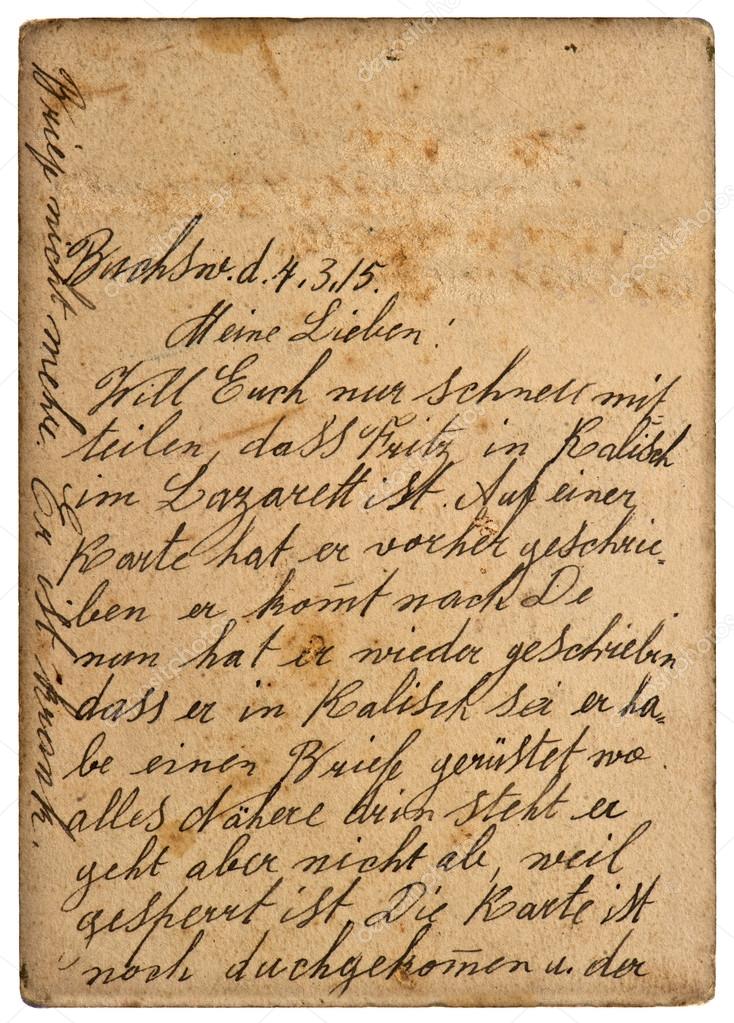 Buchsw. d. 4.3.15.
Meine Lieben!
Will Euch nur schnell mit
teilen, dass Fritz in Kalisch
im Lazarett ist. Auf einer
Karte hat er vorher geschrie=
ben er kom̄t nach De
nun hat er wieder geschriebin
dass er in Kalisch sei er ha=
be einen Brief gerüstet wo
alles Nähere drin steht er
geht aber nicht ab, weil
gesperrt ist. Die Karte ist
noch duchgekom̄en u. der
Brief nicht mehr. Er ist krank.